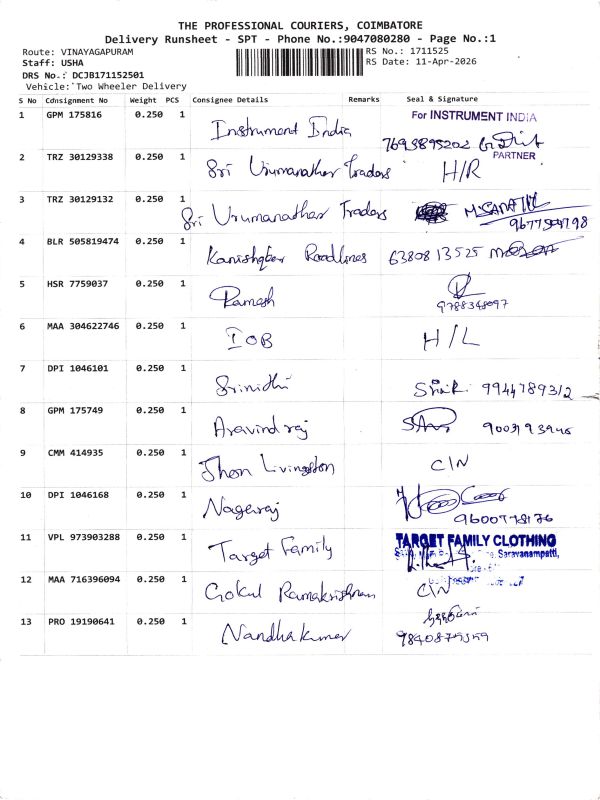 THE PROFESSIONAL COURIERS, COIMBATORE
Delivery Runsheet - SPT - Phone No.:9047080280 - Page No.:1
Route: VINAYAGAPURAM
RS No.: 1711525
Staff: USHA
RS Date: 11-Apr-2026
DRS No.: DCJB171152501
Vehicle: Two Wheeler Delivery
S No Consignment No Weight PCS Consignee Details Remarks Seal & Signature
1 GPM 175816 0.250 1 Instrument India For INSTRUMENT INDIA
7693895202
PARTNER
2 TRZ 30129338 0.250 1 Sri Urumanathar Traders H/R
3 TRZ 30129132 0.250 1 Sri Urumanathar Traders
4 BLR 505819474 0.250 1 Roadlines 63808 13525
5 HSR 7759037 0.250 1 Ramesh
9788348097
6 MAA 304622746 0.250 1 IOB H/L
7 DPI 1046101 0.250 1 Srinidhi 9944789312
8 GPM 175749 0.250 1 Aravind raj
9 CMM 414935 0.250 1 Jhon Livingston C/N
10 DPI 1046168 0.250 1 Nagaraj
11 VPL 973903288 0.250 1 Target Family TARGET FAMILY CLOTHING
Saravanampatti,
12 MAA 716396094 0.250 1 Gokul Ramakrishnan C/N
13 PRO 19190641 0.250 1 Nandhakumar